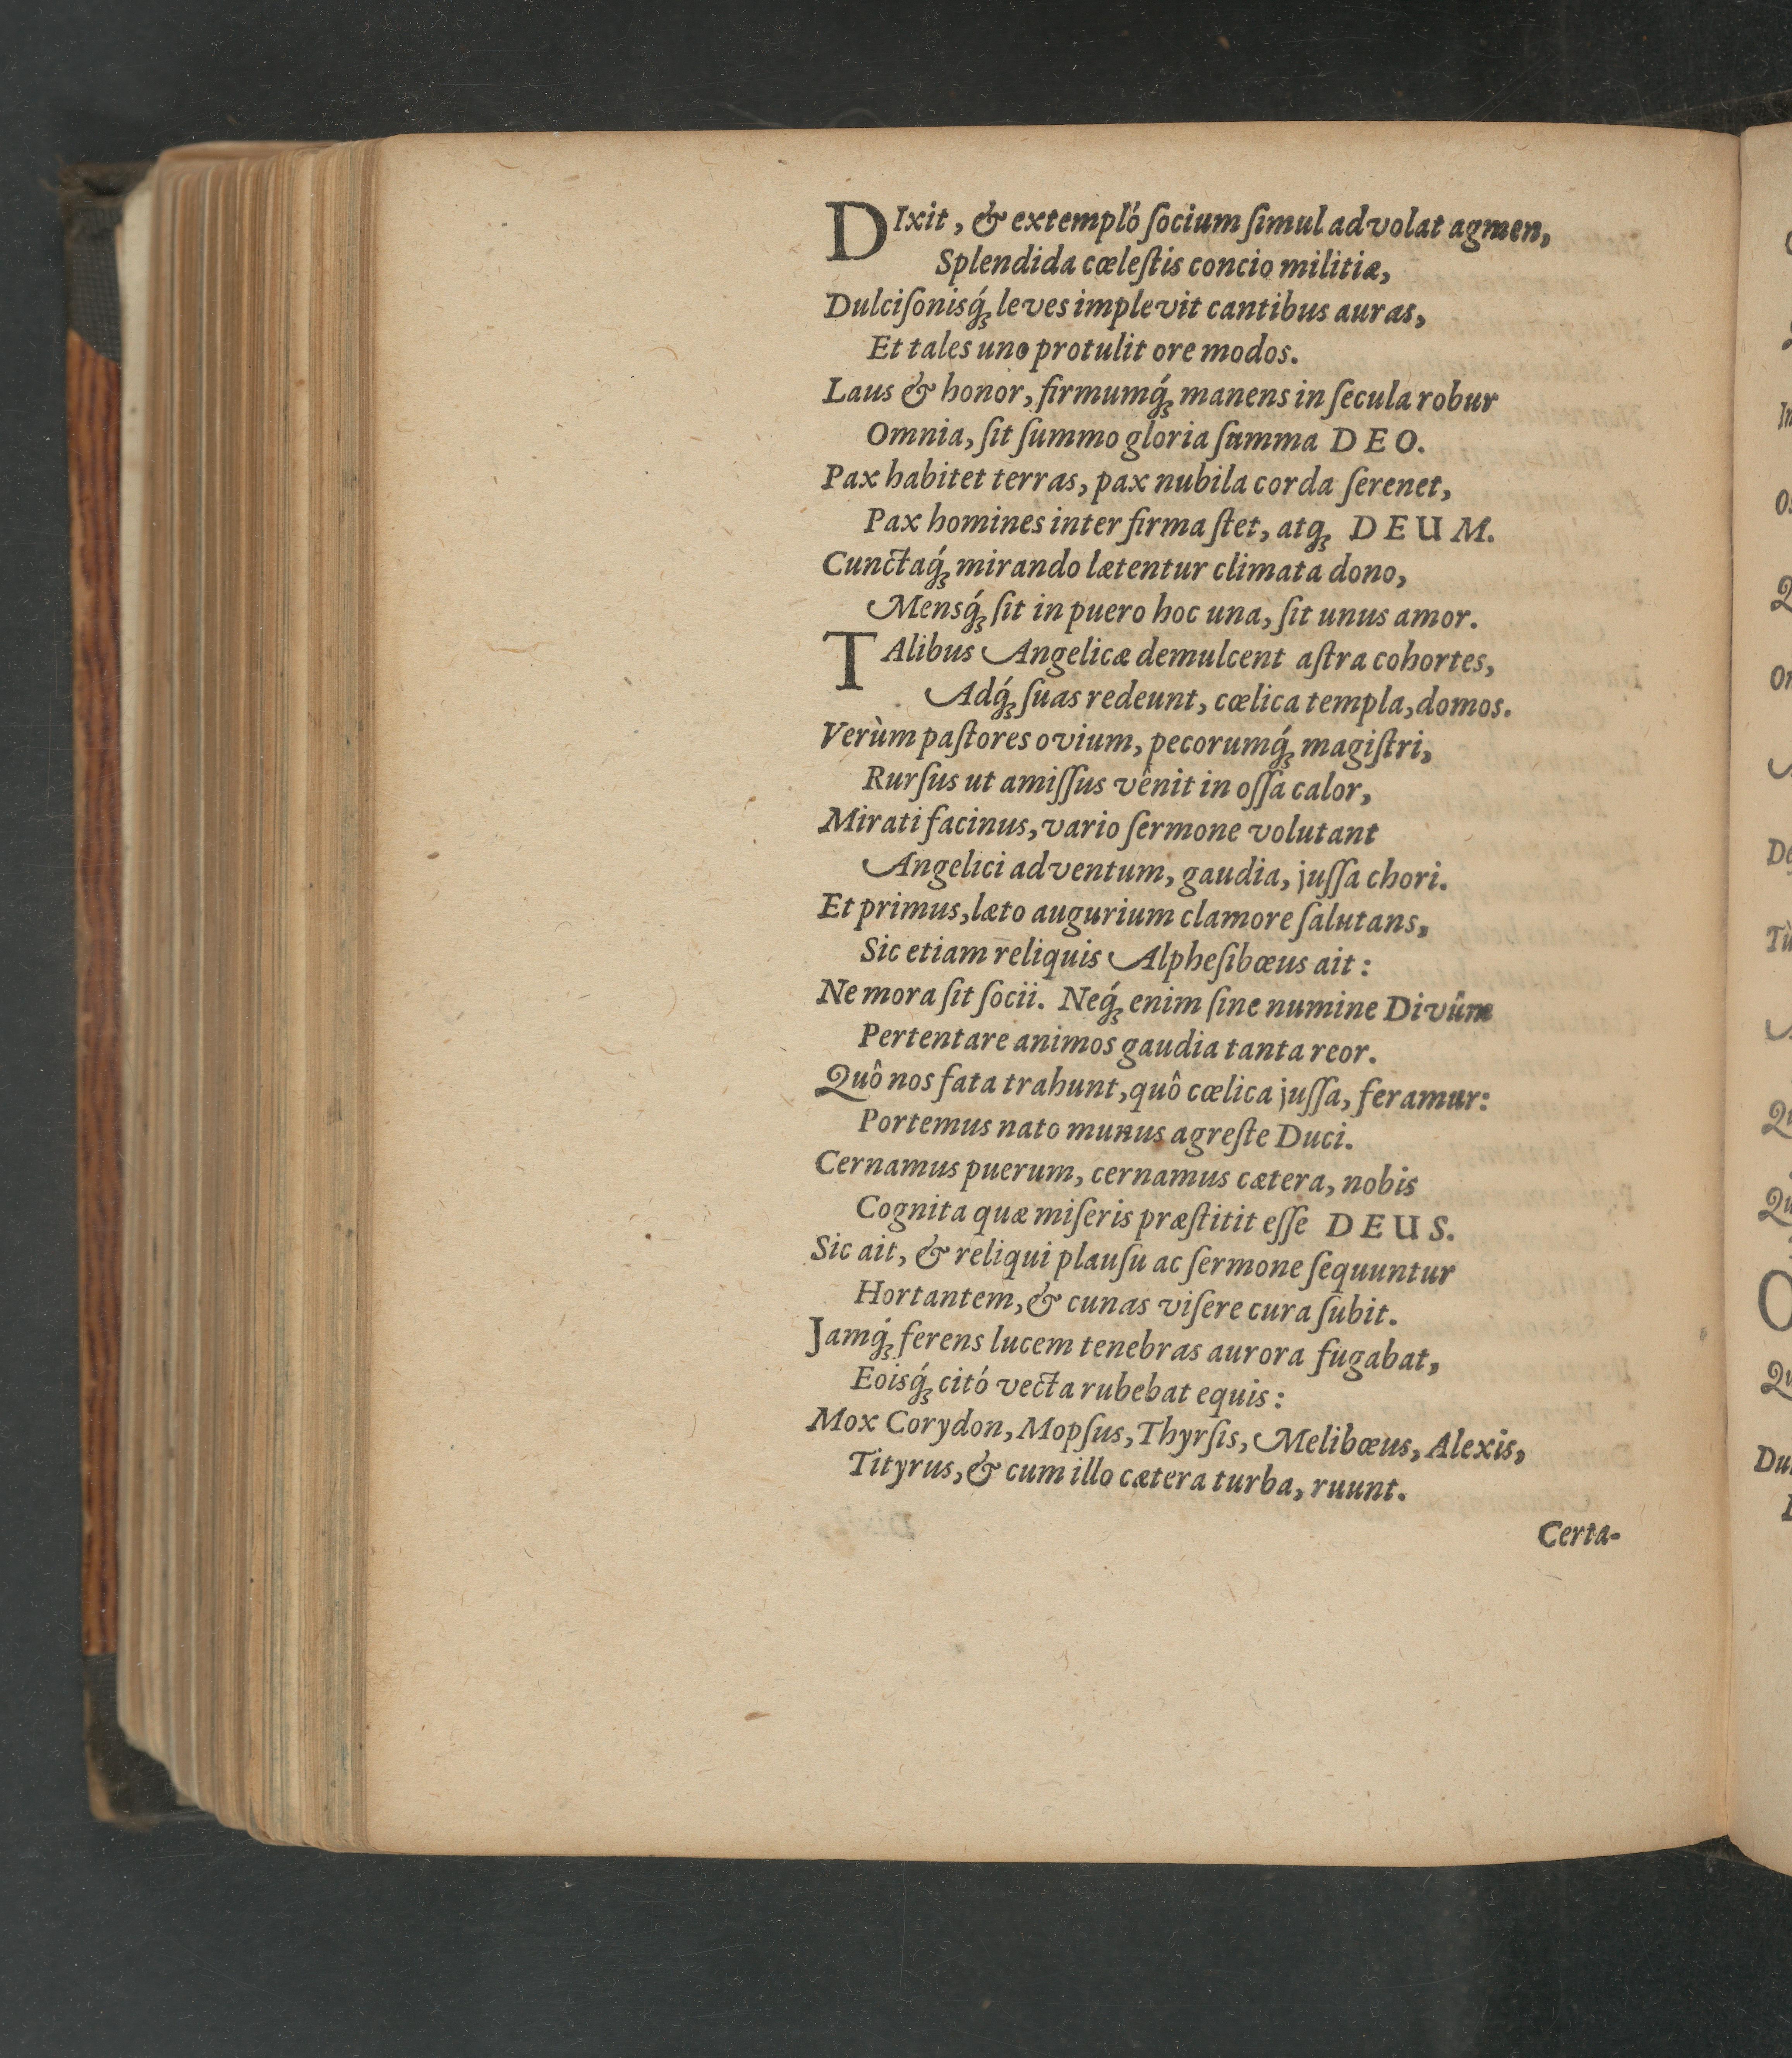 DIxit, & extempló ſocium ſimul advolat agmen,
Splendida cœleſtis concio militiæ,
Dulciſonisq́ꝫ leves implevit cantibus auras,
Et tales uno protulit ore modos.
Laus & honor, firmumq́ꝫ manens in ſecula robur
Omnia, ſit ſummo gloria ſumma DEO.
Pax habitet terras, pax nubila corda ſerenet,
Pax homines inter firma ſtet, atqꝫ DEUM.
Cunctaq́ꝫ mirando lætentur climata dono,
Mensq́ꝫ ſit in puero hoc una, ſit unus amor.
TAlibus Angelicæ demulcent aſtra cohortes,
Adq́ꝫ ſuas redeunt, cœlica templa, domos.
Verùm paſtores ovium, pecorumq́ꝫ magiſtri,
Rurſus ut amiſſus vênit in oſſa calor,
Mirati facinus, vario ſermone volutant
Angelici adventum, gaudia, juſſa chori.
Et primus, læto augurium clamore ſalutans,
Sic etiam reliquis Alpheſibœus ait:
Ne mora ſit ſocii. Neq́ꝫ enim ſine numine Divûm
Pertentare animos gaudia tanta reor.
Quô nos fata trahunt, quô cœlica juſſa, feramur:
Portemus nato munus agreſte Duci.
Cernamus puerum, cernamus cætera, nobis
Cognita quæ miſeris præſtitit eſſe DEUS.
Sic ait, & reliqui plauſu ac ſermone ſequuntur
Hortantem, & cunas viſere cura ſubit.
Jamq́ꝫ ferens lucem tenebras aurora fugabat,
Eoisq́ꝫ citó vecta rubebat equis:
Mox Corydon, Mopſus, Thyrſis, Melibœus, Alexis,
Tityrus, & cum illo cætera turba, ruunt.
Certa-